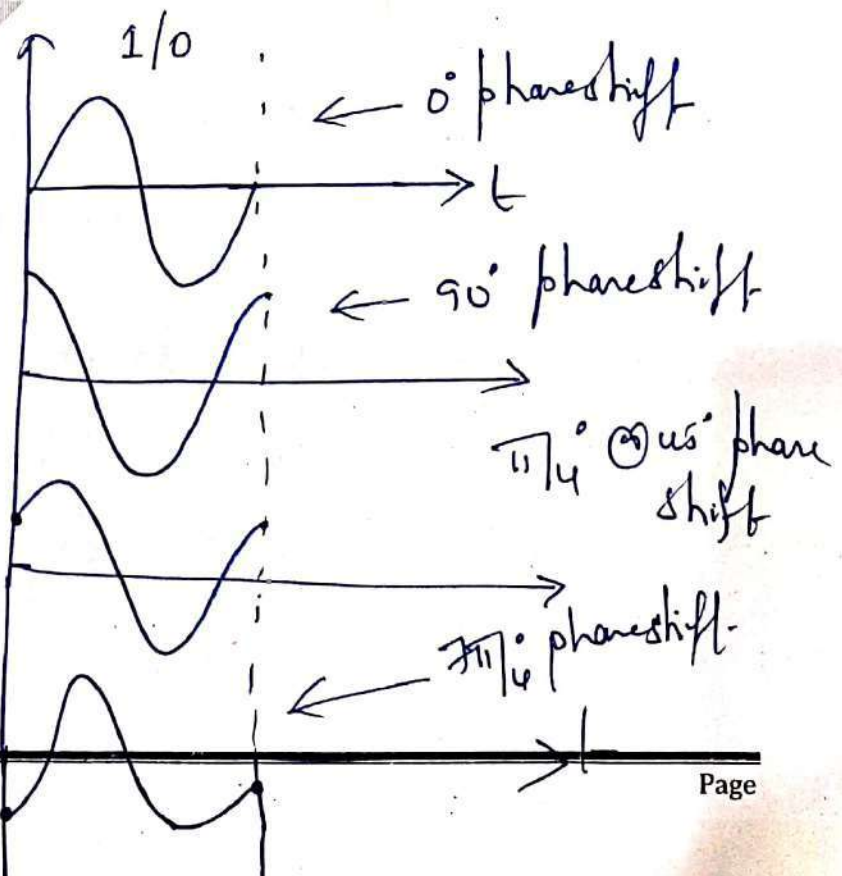 1/0
0° phaseshift
t
90° phaseshift
π/4° or 45° phase
shift
7π/4° phaseshift
t
Page